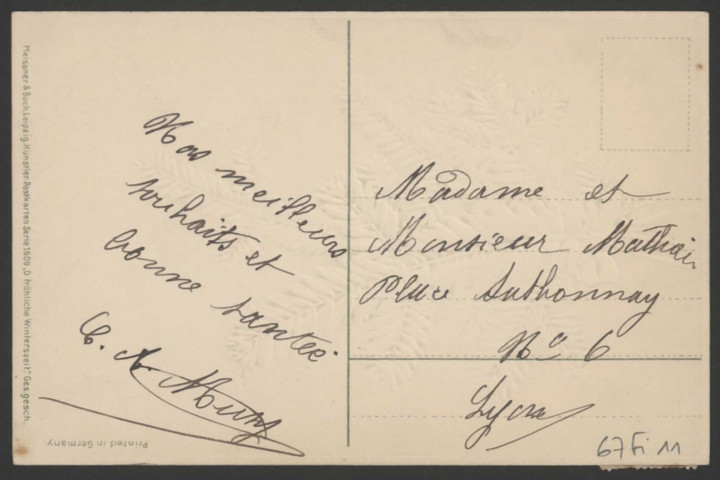 Nos meilleurs
souhaits et
bonne santée
Madame et
Monsieur Mathair
Place Sathonnay
No 6
Lyon
67 Fi 11
Meissner & Buch, Leipzig. Künstler-Postkarten Serie 1809 „O fröhliche Winterszeit." Ges. gesch.
Printed in Germany